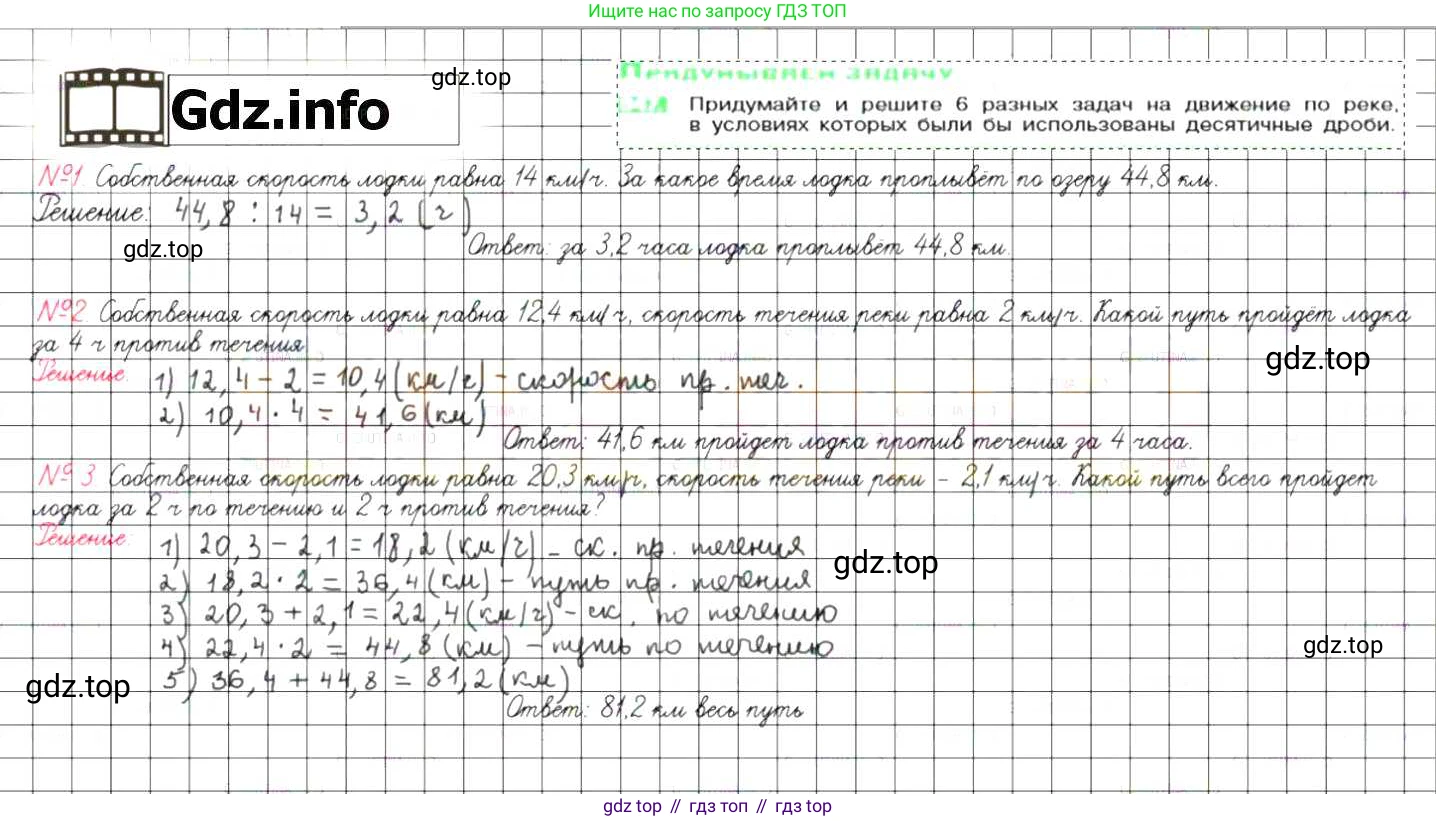 Ищите нас по запросу ГДЗ ТОП
gdz.top
Gdz.info
Придумываем задачу
Придумайте и решите 6 разных задач на движение по реке,
в условиях которых были бы использованы десятичные дроби.
№1. Собственная скорость лодки равна 14 км/ч. За какое время лодка проплывёт по озеру 44,8 км.
Решение: 44,8 : 14 = 3,2 (ч)
gdz.top
Ответ: за 3,2 часа лодка проплывёт 44,8 км.
gdz.top
№2. Собственная скорость лодки равна 12,4 км/ч, скорость течения реки равна 2 км/ч. Какой путь пройдёт лодка
за 4 ч против течения
gdz.top
Решение: 1) 12,4 - 2 = 10,4 (км/ч) - скорость пр. теч.
2) 10,4 · 4 = 41,6 (км)
Ответ: 41,6 км пройдет лодка против течения за 4 часа.
№ 3 Собственная скорость лодки равна 20,3 км/ч, скорость течения реки - 2,1 км/ч. Какой путь всего пройдет
лодка за 2 ч по течению и 2 ч против течения?
Решение: 1) 20,3 - 2,1 = 18,2 (км/ч) - ск. пр. течения
gdz.top
2) 18,2 · 2 = 36,4 (км) - путь пр. течения
3) 20,3 + 2,1 = 22,4 (км/ч) - ск. по течению
4) 22,4 · 2 = 44,8 (км) - путь по течению
gdz.top
5) 36,4 + 44,8 = 81,2 (км)
gdz.top
Ответ: 81,2 км весь путь
gdz top // гдз топ // gdz top